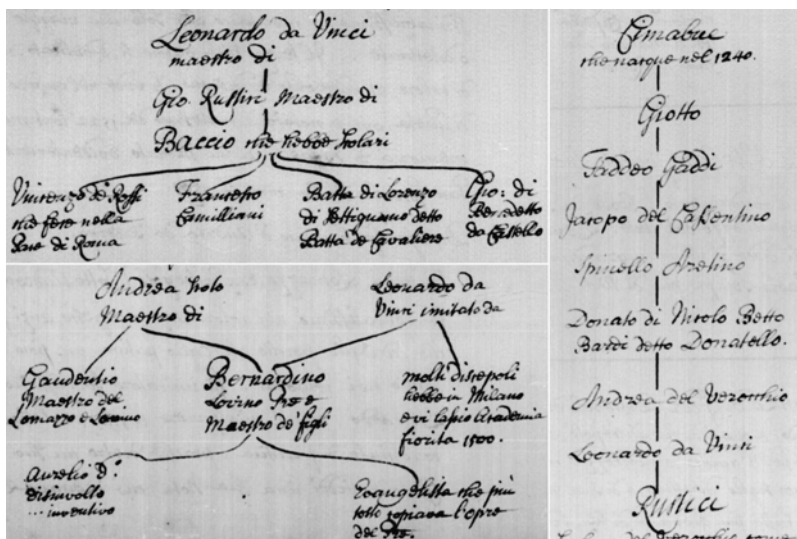 Leonardo da Vinci
maestro di
Gio. Rustici Maestro di
Baccio che hebbe scolari
Vincenzo de Rossi
che fece nella
Pace di Roma
Francesco
Camilliani
Batta di Lorenzo
di Settignano detto
Batta de Cavaliere
Gio: di
Benedetto
da Castello
Andrea
Maestro di
Leonardo da
Vinci imitato da
Gaudentio
Maestro del
Lomazzo e
Bernardino
Lovino Pre e
Maestro de figli
molti discepoli
hebbe in Milano
e vi lascio Academia
fiorita 1500.
Aurelio
disinvolto
... inventivo
Evangelista che più
tosto copiava l'opre
del Pre.
Cimabue
che nacque nel 1240.
Giotto
Taddeo Gaddi
Jacopo del Cassentino
Spinello Aretino
Donato di Nicolo Betto
Bardi detto Donatello.
Andrea del Verocchio
Leonardo da Vinci
Rustici